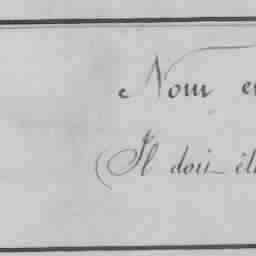 Nom e
(Il doit êt